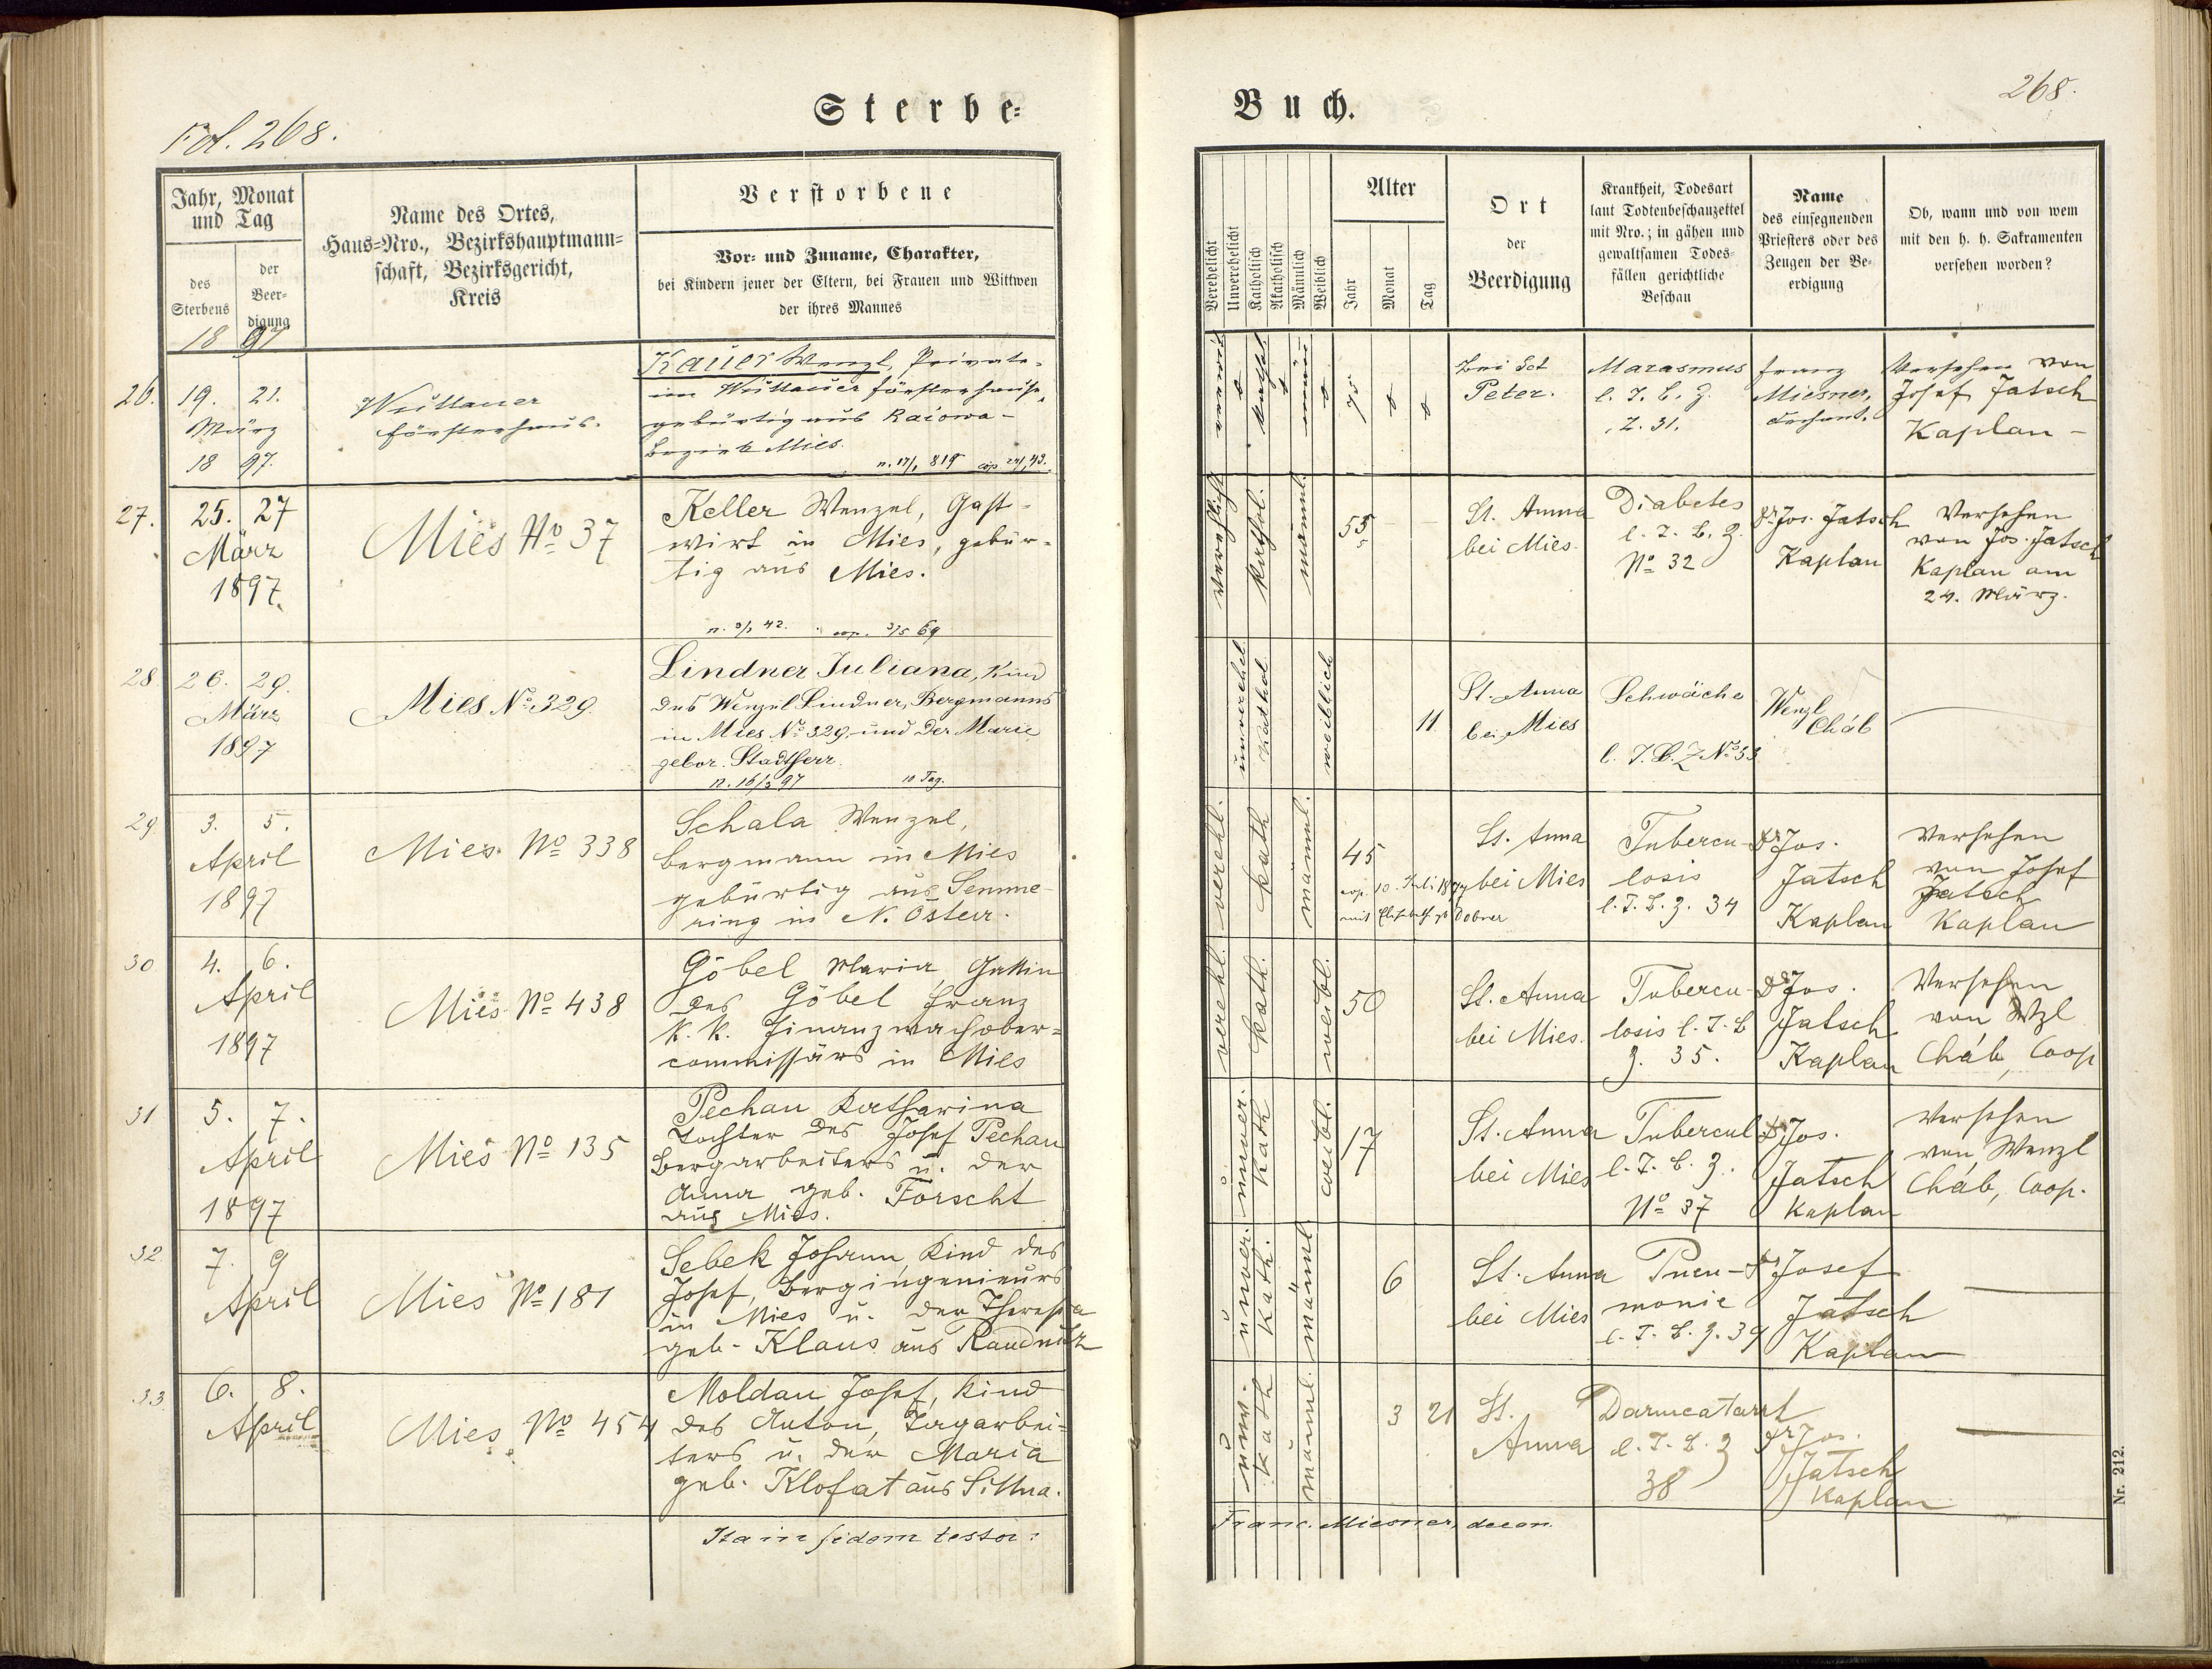 Fol. 268.
Sterbe-
Jahr, Monat
und Tag
des
Sterbens
der
Beer-
digung
18 97
Name des Ortes,
Haus-Nro., Bezirkshauptmann-
schaft, Bezirksgericht,
Kreis
Verstorbene
Vor- und Zuname, Charakter,
bei Kindern jener der Eltern, bei Frauen und Wittwen
der ihres Mannes
26.
19. 21.
März
18 97.
Försterhaus.
Kauer Wenzl, Private-
im Försterhause,
gebürtig aus Racowa-
Bezirk Mies.
n. 17/1 819 cop 24/1 43.
27.
25. 27
März
1897.
Mies No 37
Keller Wenzel, Gast-
wirt in Mies, gebür-
tig aus Mies.
n. 9/2 42. cop. 3/5 69
28
26. 29.
März
1897
Mies No. 329.
Lindner Juliana, Kind
des Wenzel Lindner, Bergmanns
in Mies No. 329. und der Marie
gebor. Stadtherr.
n. 16/3 97 10 Tag.
29
3. 5.
April
1897
Mies. No 338
Schala Wenzel,
Bergmann in Mies
gebürtig aus Semme-
ring in N. Österr.
30
4. 6.
April
1897
Mies No 438
Göbel Maria Gattin
des Göbel Franz
k. k. Finanzwachober-
commissärs in Mies
31
5. 7.
April
1897
Mies No 135
Pechan Katharina
Tochter des Josef Pechan
Bergarbeiters u. der
Anna geb. Forscht
aus Mies.
32
7. 9
April
Mies No 181
Sebek Johann, Kind des
Josef, Bergingenieurs
in Mies u. der Theresia
geb. Klaus aus Raudnitz
33
6. 8.
April
Mies No 454
Moldau Josef, Kind
des Anton, Tagarbei-
ters u. der Maria
geb. Klofat aus Sittna.
Ita in fidem testor:
Buch.
268.
Verehelicht
Unverehelicht
Katholisch
Akatholisch
Männlich
Weiblich
Alter
Jahr
Monat
Tag
Ort
der
Beerdigung
Krankheit, Todesart
laut Todtenbeschauzettel
mit Nro.; in gähen und
gewaltsamen Todes-
fällen gerichtliche
Beschau
Name
des einsegnenden
Priesters oder des
Zeugen der Be-
erdigung
Ob, wann und von wem
mit den h. h. Sakramenten
versehen worden?
Bei Sct
Peter.
Marasmus
l. T. b. Z.
Z. 31.
Franz
Miesner,
Dechant.
Versehen von
Josef Jatsch
Kaplan -
verehlicht
kathol.
männl.
55
St. Anna
bei Mies.
Diabetes
l. T. B. Z.
No 32
Dr. Jos. Jatsch
Kaplan
Versehen
von Jos. Jatsch
Kaplan am
24. März.
unverehel.
Kathol.
weiblich
11
St. Anna
bei Mies
Schwäche
l. T. B. Z No 33
Wenzl
Cháb
verehl.
kath
männl.
45
cop. 10. Juli 1877
mit Elisabeth gb Dobner
St. Anna
bei Mies
Tubercu-
losis
l. T. B. Z. 34
Dr Jos.
Jatsch
Kaplan
Versehen
von Josef
Jatsch
Kaplan
verehl.
kath.
weibl.
50
St. Anna
bei Mies.
Tubercu-
losis l. T. B
Z. 35.
Dr Jos.
Jatsch
Kaplan
Versehen
von Wzl
Cháb, Coop
unver.
kath
weibl.
17
St. Anna
bei Mies
Tubercul
l. T. B. Z.
No 37
Dr Jos.
Jatsch
Kaplan
Versehen
von Wenzl
Cháb, Coop.
unver.
kath.
männl.
6
St. Anna
bei Mies
Pneu-
monie
l. T. B. Z. 39
Dr Josef
Jatsch
Kaplan
unv.
kath
männl.
3 21
St.
Anna
Darmcatarrh
l. T. B. Z
38
Dr Jos.
Jatsch
Kaplan
Franc. Miesner, decan.
Nr. 212.